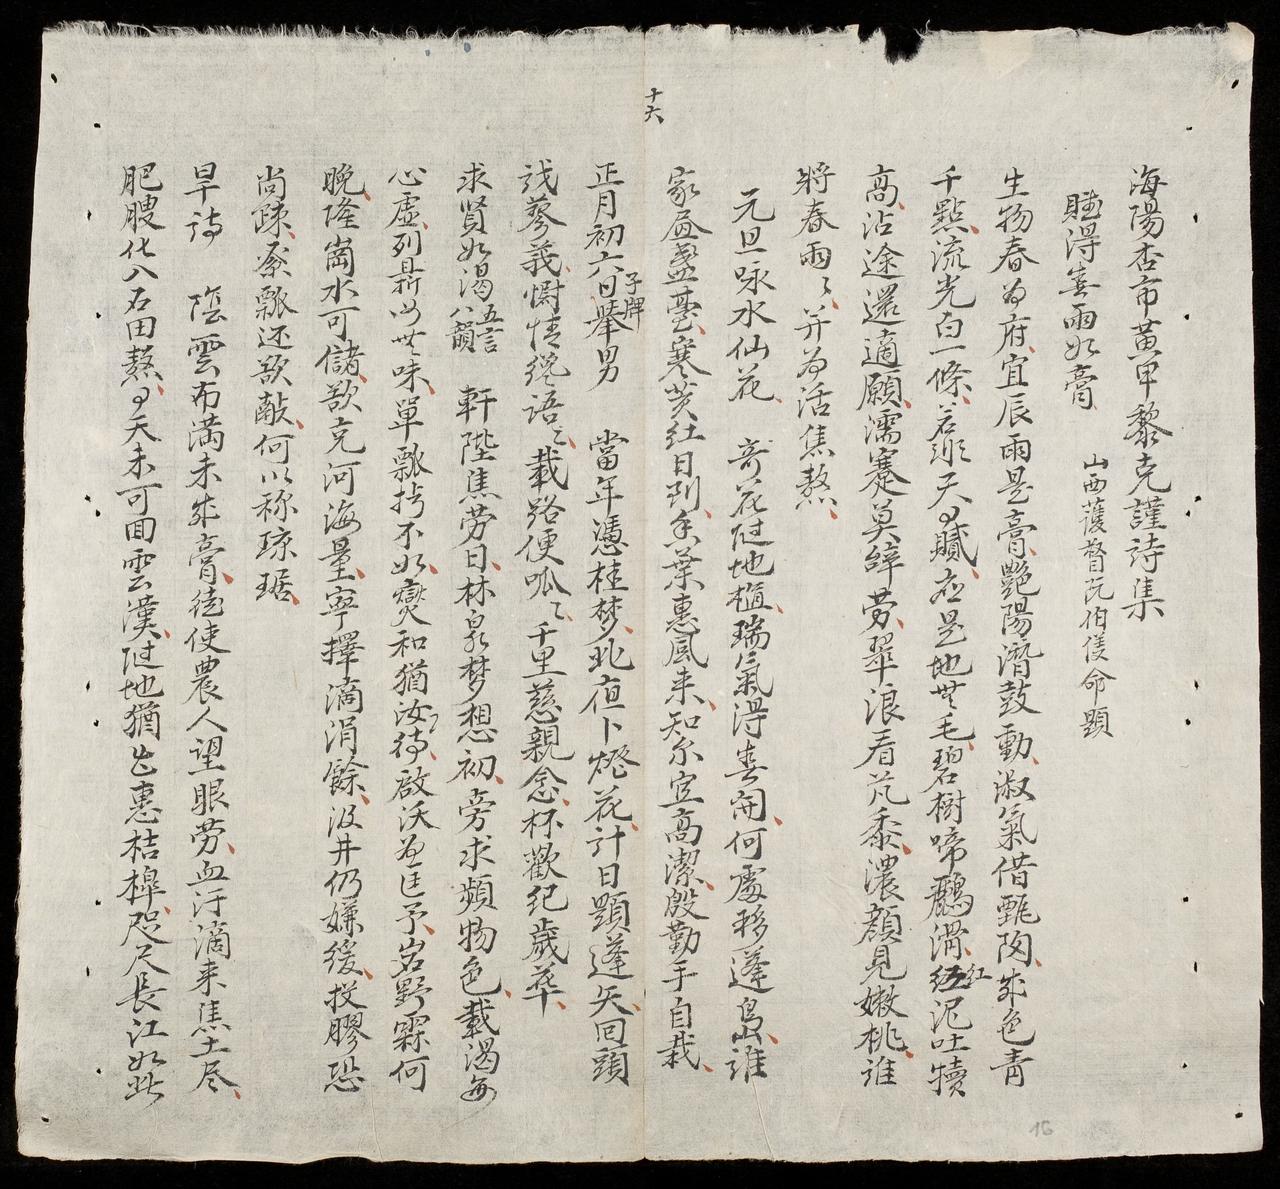 十六
海陽杏市黄甲黎克謹詩集
賦得春雨如膏
山西護督阮伯儀命題
生物春為府宜辰雨是膏艷陽潛鼓動淑氣借甄陶 色青
千點流光白一條 天 賦 是地 毛碧樹啼鸝滑紅泥吐犢
紅
高沾途還適願濡蹇莫辭勞翠浪看芃黍濃顔見嫩桃誰
將春雨〻并為活焦熬
元旦咏水仙花 奇花 地植瑞氣得春開何處移蓬島山誰
家 盞臺寒 紅日到 葉惠風来知尓宜高潔殷勤手自栽
正月初六日舉男 當年憑桂梦 夜卜燈花計日顯蓬矢回頭
子牌
誐蓼莪 情 語〻載路便呱〻千里慈親念杯歡紀歲華
求賢如渴 軒陛焦劳日林泉梦想初旁求頻物色載渴每
五言
八韻
心虚列鼎 世味單瓢 不如燮和猶汝待啟沃 匡予岩野霖何
晚隆崗水可儲欲克河海量寧擇滴涓餘汲井仍嫌緩投膠恐
尚踈 瓢还欲 何以称琼琚
旱詩 陰雲布满未成膏徒使農人望眼劳血汗滴来焦土尽
肥膄化入石田熬 天未可回雲漢 地猶 惠桔槔咫尺長江如此
16